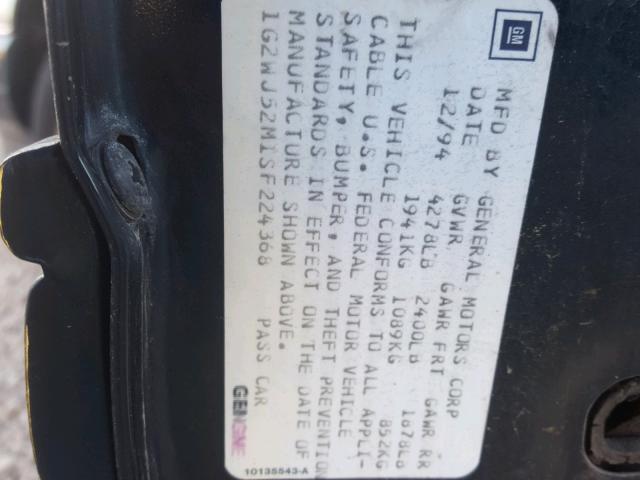 GM
MFD BY GENERAL MOTORS CORP
DATE GVWR GAWR FRT GAWR RR
12/94 4278LB 2400LB 1878LB
1941KG 1089KG 852KG
THIS VEHICLE CONFORMS TO ALL APPLI-
CABLE U.S. FEDERAL MOTOR VEHICLE
SAFETY, BUMPER, AND THEFT PREVENTION
STANDARDS IN EFFECT ON THE DATE OF
MANUFACTURE SHOWN ABOVE.
1G2WJ52M1SF224368 PASS CAR
10135543-A